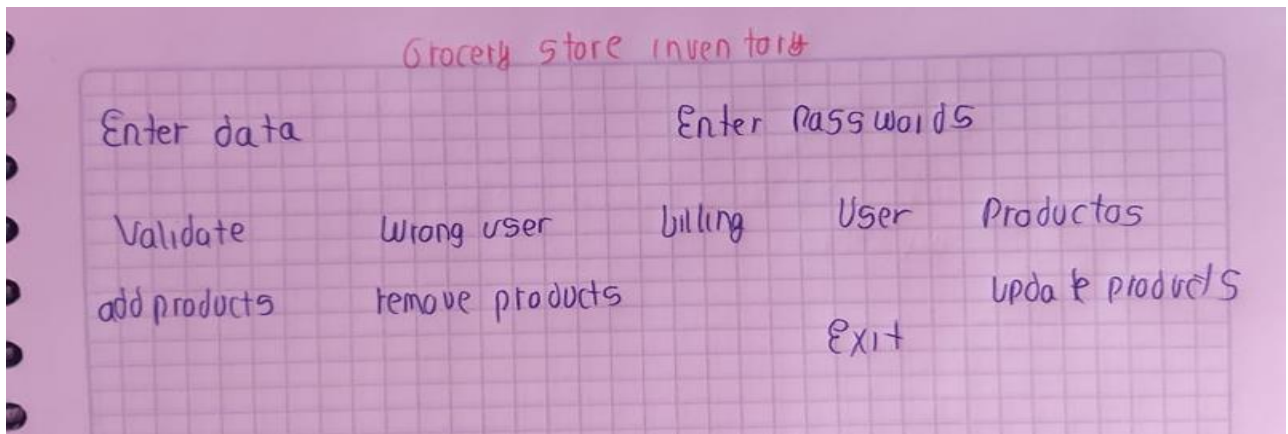 Grocery store inventory
Enter data Enter Passwords
Validate Wrong user billing User Productos
add products remove products update products
Exit